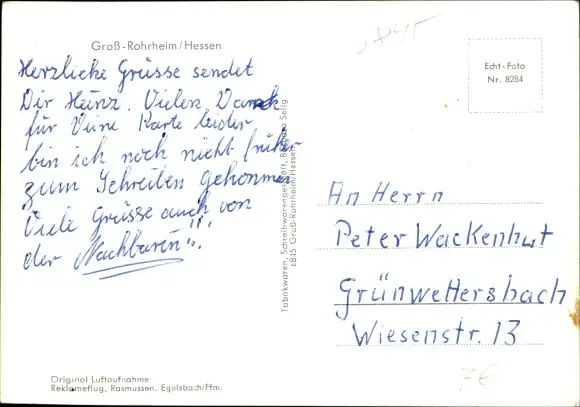 Groß-Rohrheim/Hessen
Herzliche Grüsse sendet
Dir Heinz. Vielen Dank
für Deine Karte leider
bin ich noch nicht früher
zum Schreiben gekommen
Viele Grüsse auch von
der Nachbarin!!!
Original Luftaufnahme
Reklameflug, Rasmussen. Egelsbach/Ffm.
Tabakwaren, Schreibwarengeschäft, Selig
6815 Groß-Rohrheim/Hessen
Echt-Foto
Nr. 8284
An Herrn
Peter Wackenhut
Grünwettersbach
Wiesenstr. 13
7€